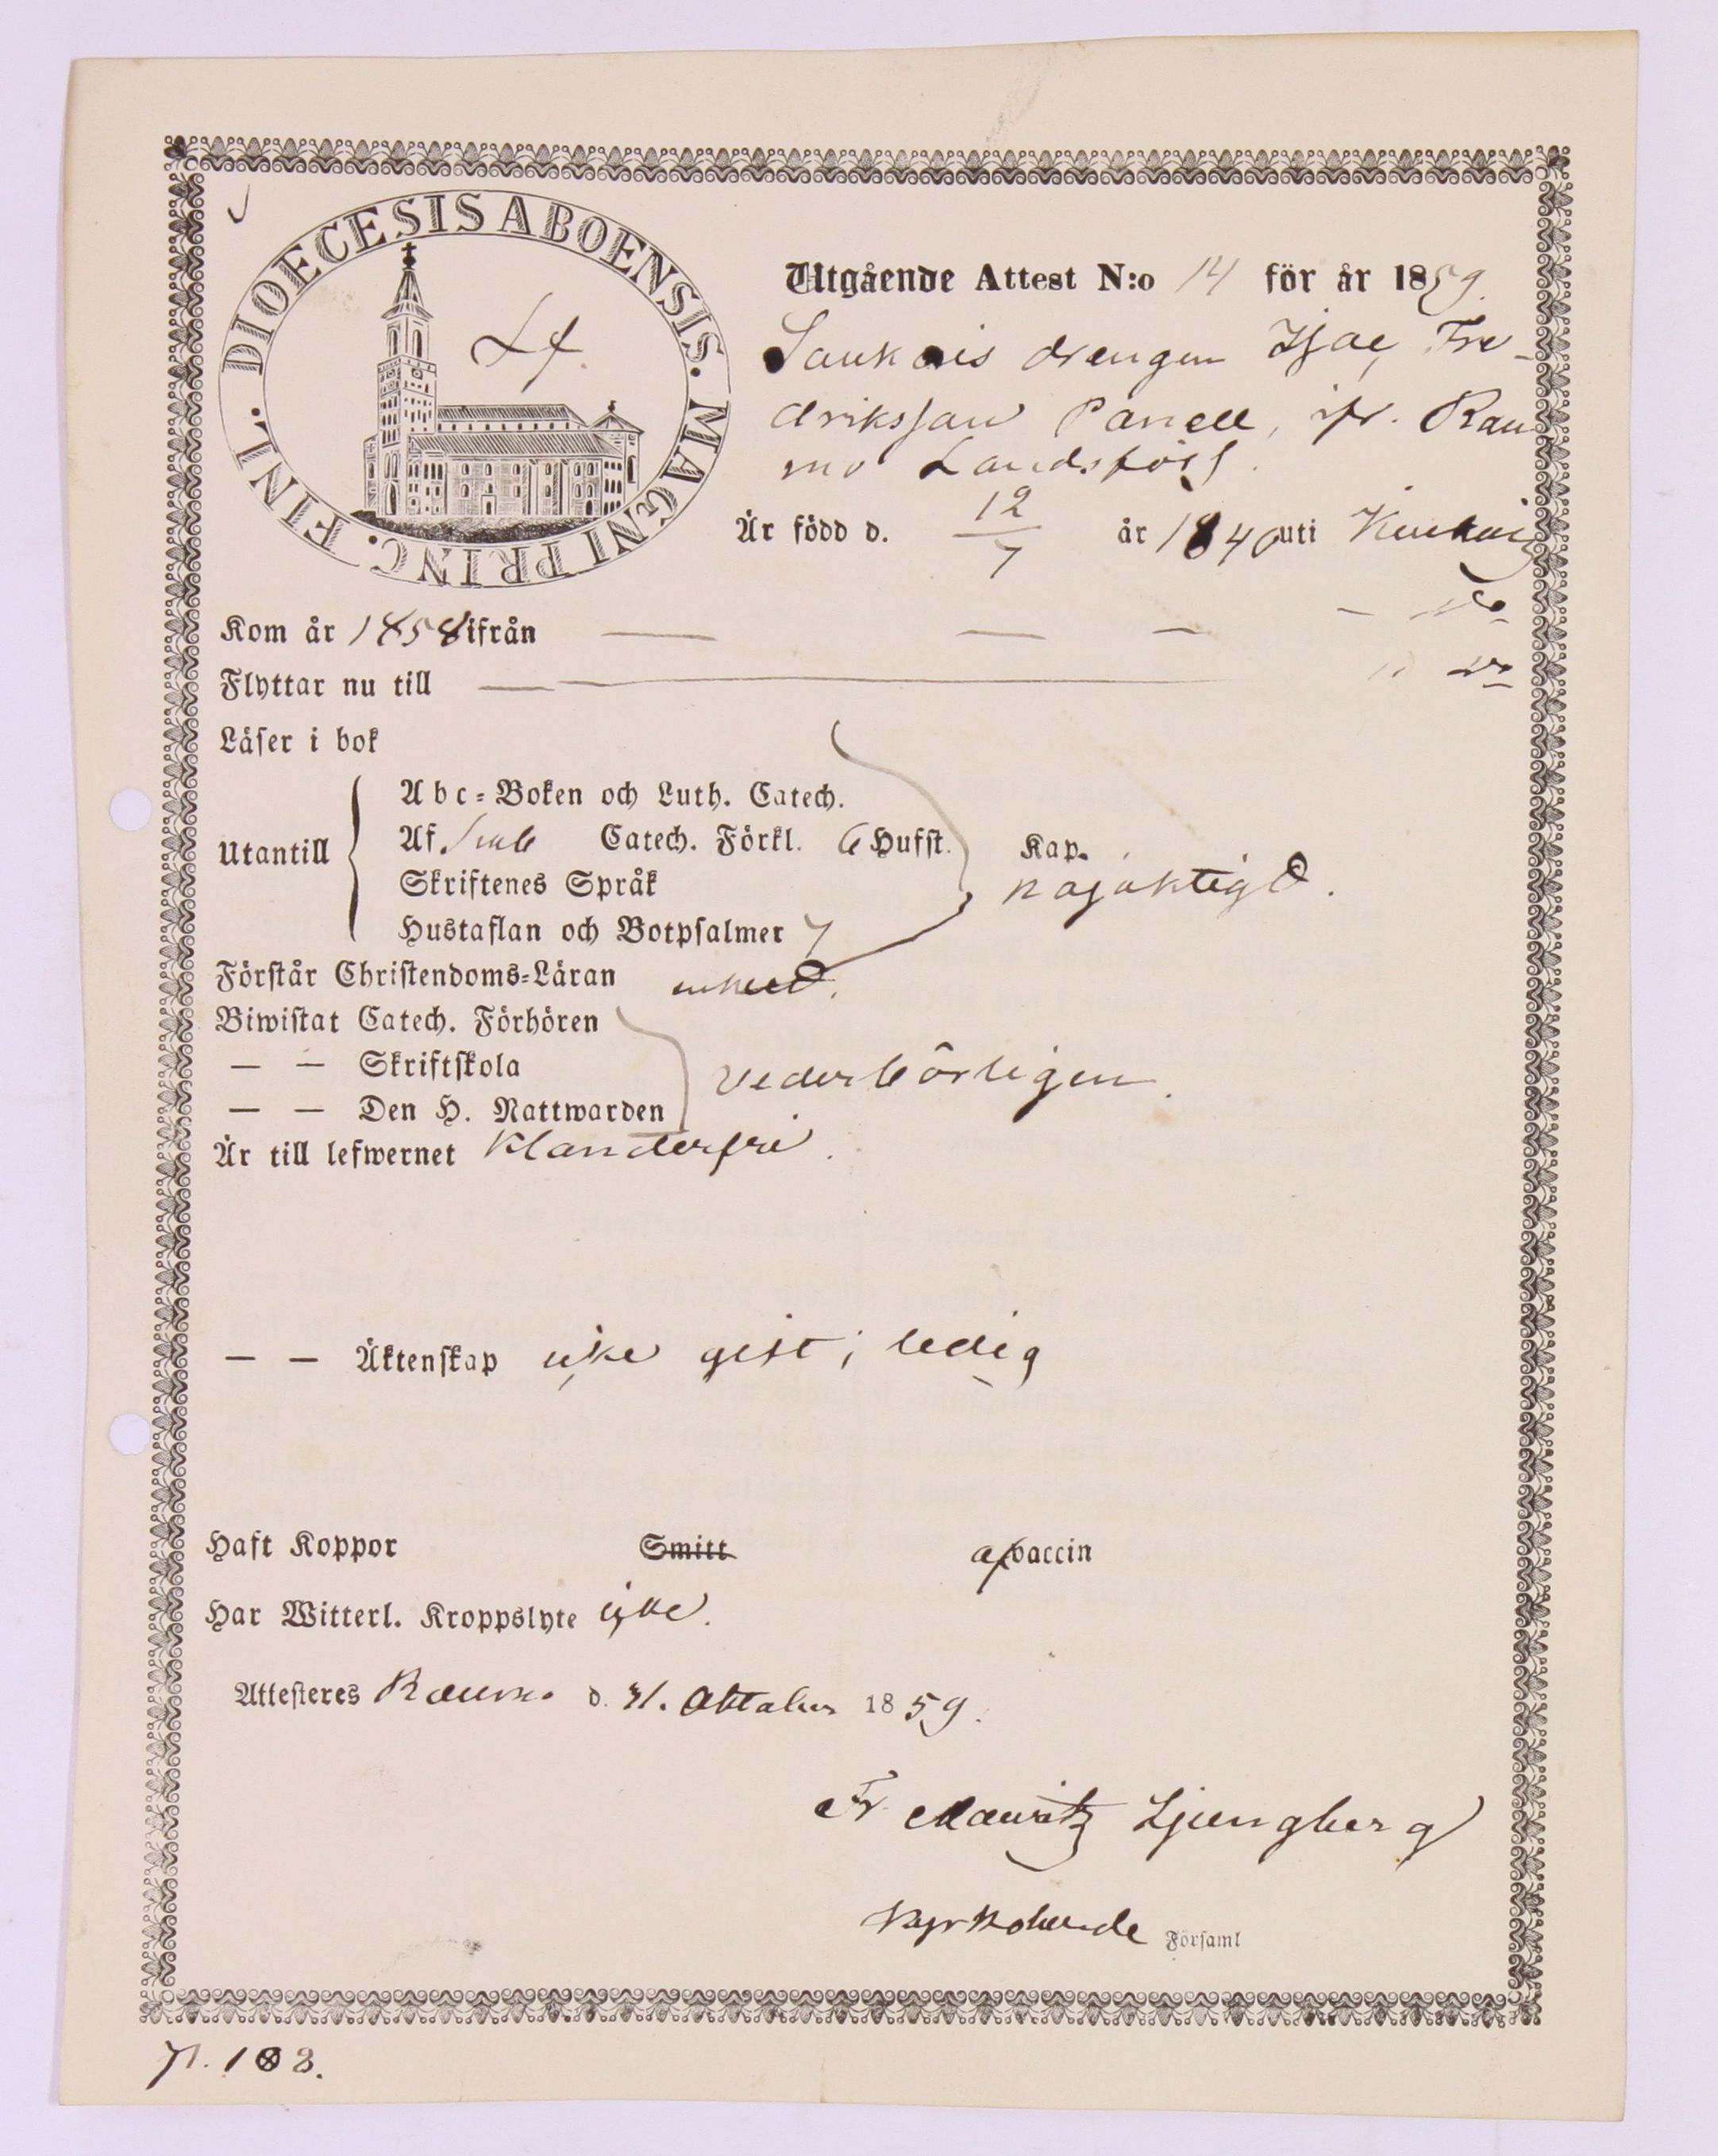 DIOECESIS ABOENSIS. MAGNI PRINC. FINL.
Lf.
Utgående Attest N:o 14 för år 1859.
drengen Isac Fre-
driksson Panell, ifr. Rau
mo Landsförs.
Är född d. 12/7 år 1840 uti
Kom år 1858 ifrån — — — —
Flyttar nu till —
Läser i bok
Utantill
Abc-Boken och Luth. Catech.
Af Catech. Förkl. 6 Hufst. Kap.
Skriftenes Språk nöjaktigt.
Hustaflan och Botpsalmer 7
Förstår Christendoms-Läran enkelt.
Biwistat Catech. Förhören
— — Skriftskola vederbörligen.
— — Den H. Nattwarden
Är till lefwernet klanderfri.
— — Äktenskap icke gift; ledig
Haft Koppor Smitt af vaccin
Har Witterl. Kroppslyte icke.
Attesteres Raumo d. 31. Oktober 1859.
Fr. Mauritz Ljungberg
Kyrkoherde Församl
p. 103.